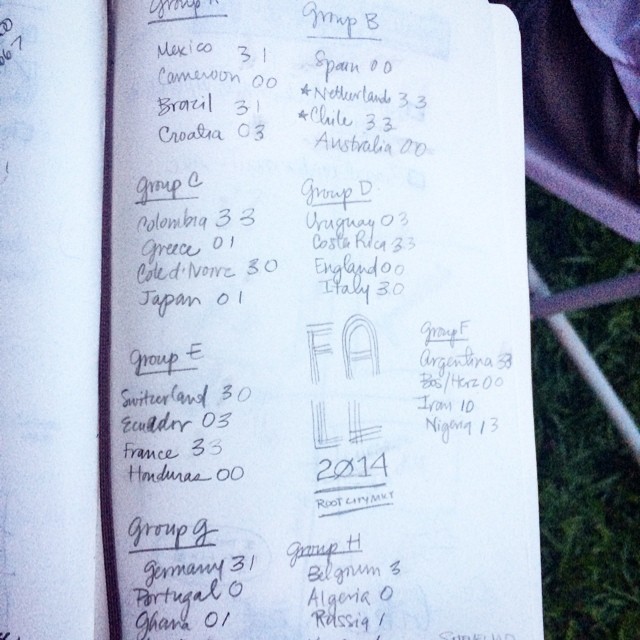 Group A
Mexico 3 1
Cameroon 0 0
Brazil 3 1
Croatia 0 3
Group B
Spain 0 0
*Netherlands 3 3
*Chile 3 3
Australia 0 0
Group C
Colombia 3 3
Greece 0 1
Cote d'Ivoire 3 0
Japan 0 1
Group D
Uruguay 0 3
Costa Rica 3 3
England 0 0
Italy 3 0
Group E
Switzerland 3 0
Ecuador 0 3
France 3 3
Honduras 0 0
FA
LL
2014
ROOT CITY MKT
Group F
Argentina 3 3
Bos/Herz 0 0
Iran 1 0
Nigeria 1 3
Group G
Germany 3 1
Portugal 0
Ghana 0 1
Group H
Belgium 3
Algeria 0
Russia 1